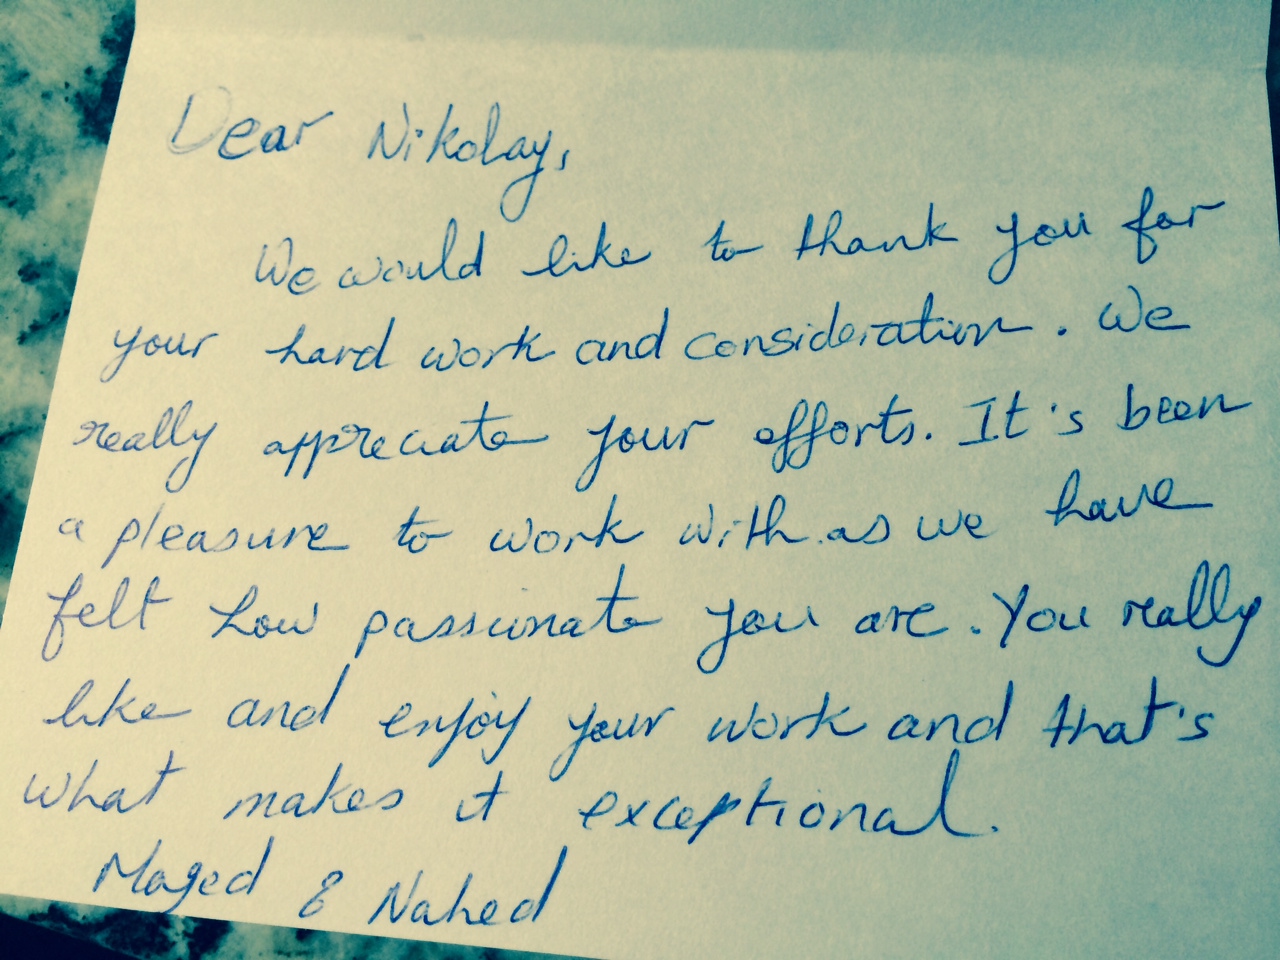 Dear Nikolay,
We would like to thank you for
your hard work and consideration. We
really appreciate your efforts. It's been
a pleasure to work with as we have
felt how passionate you are. You really
like and enjoy your work and that's
what makes it exceptional.
Maged & Nahed